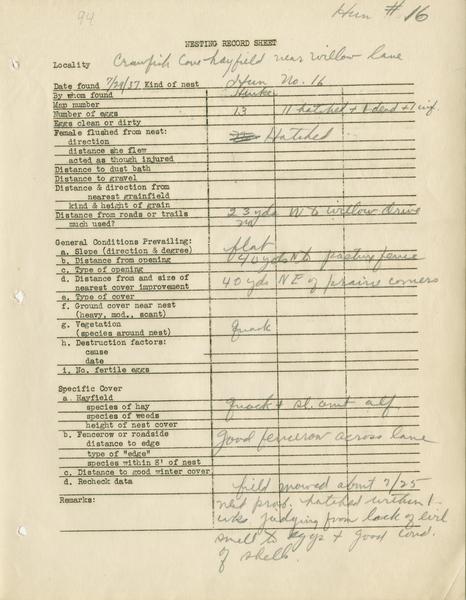 94
Hun # 16
NESTING RECORD SHEET
Locality Crawfish Cons hayfield near willow lane
Date found 7/29/37 Kind of nest Hun No. 16
By whom found
Map number
Number of eggs 13 11 hatched + 1 dead + 1 inf.
Eggs clean or dirty
Female flushed from nest: Hatched
direction
distance she flew
acted as though injured
Distance to dust bath
Distance to gravel
Distance & direction from
nearest grainfield
kind & height of grain
Distance from roads or trails 23 yds N to willow drive
much used?
General Conditions Prevailing:
a. Slope (direction & degree) flat
b. Distance from opening 40 yds pasture fence
c. Type of opening
d. Distance from and size of 40 yds NE of prairie corners
nearest cover improvement
e. Type of cover
f. Ground cover near nest
(heavy, mod., scant)
g. Vegetation quack
(species around nest)
h. Destruction factors:
cause
date
i. No. fertile eggs
Specific Cover
a. Hayfield
species of hay quack + sl. amt alf
species of weeds
height of nest cover
b. Fencerow or roadside good fencerow across lane
distance to edge
type of "edge"
species within 8' of nest
c. Distance to good winter cover
d. Recheck data field mowed about 7/25
Remarks: nest prob. hatched within 1
wk judging from lack of evil
smell to eggs + good cond.
of shells.